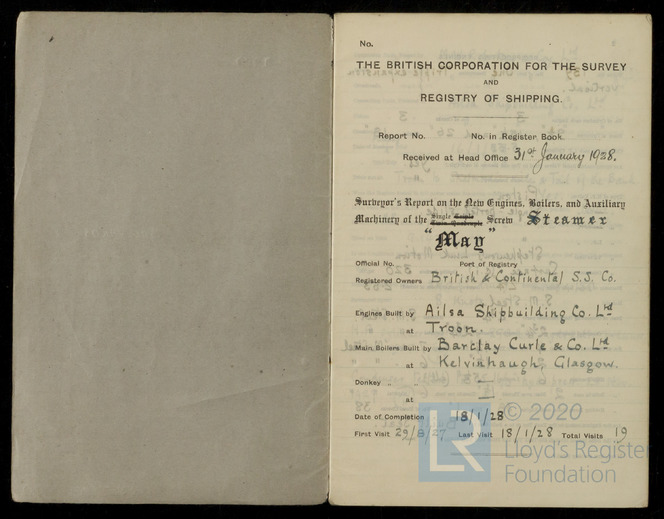 No.
THE BRITISH CORPORATION FOR THE SURVEY
AND
REGISTRY OF SHIPPING.
Report No. No. in Register Book
Received at Head Office 31st January 1928.
Surveyor's Report on the New Engines, Boilers, and Auxiliary
Machinery of the Single Triple Twin Quadruple Screw Steamer
"May"
Official No. Port of Registry
Registered Owners British & Continental S.S. Co.
Engines Built by Ailsa Shipbuilding Co. Ltd
at Troon.
Main Boilers Built by Barclay Curle & Co. Ltd
at Kelvinhaugh, Glasgow.
Donkey „
at
Date of Completion 18/1/28
First Visit 29/8/27 Last Visit 18/1/28 Total Visits 19
LR
© 2020
Lloyd's Register
Foundation